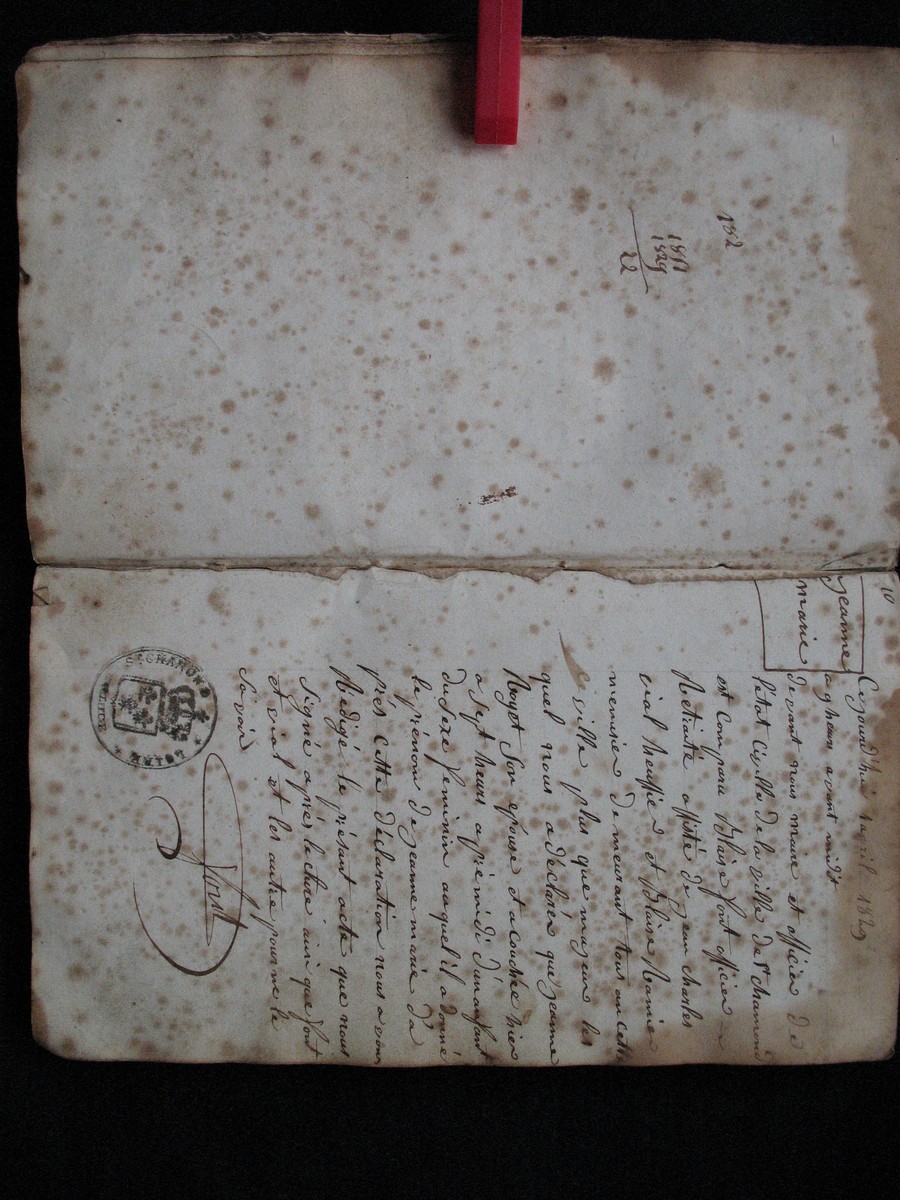 182
1851
1829
22
10
jeanne
marie
Ce jourd'hui avril 1829
avant midi
devant nous maire et officier de
l'état civille de la ville de St chamond
est comparu Blaise font officier
Retraité assisté de jean charles
vial et Blaise
menusier demeurant tous en cette
ville plus que majeur les
quel nous a déclaré que jeanne
son épouse et acouchée hier
a sept heures apré midi d'un anfant
du sexe feminin auquel il a donné
le prénom de jeanne marie d'a
prés cette déclaration nous avons
Rédigé le présant acte que nous
Signé aprés lecture ainsi que font
et vial et les autre pour ne le
savoir
font
ST CHAMOND